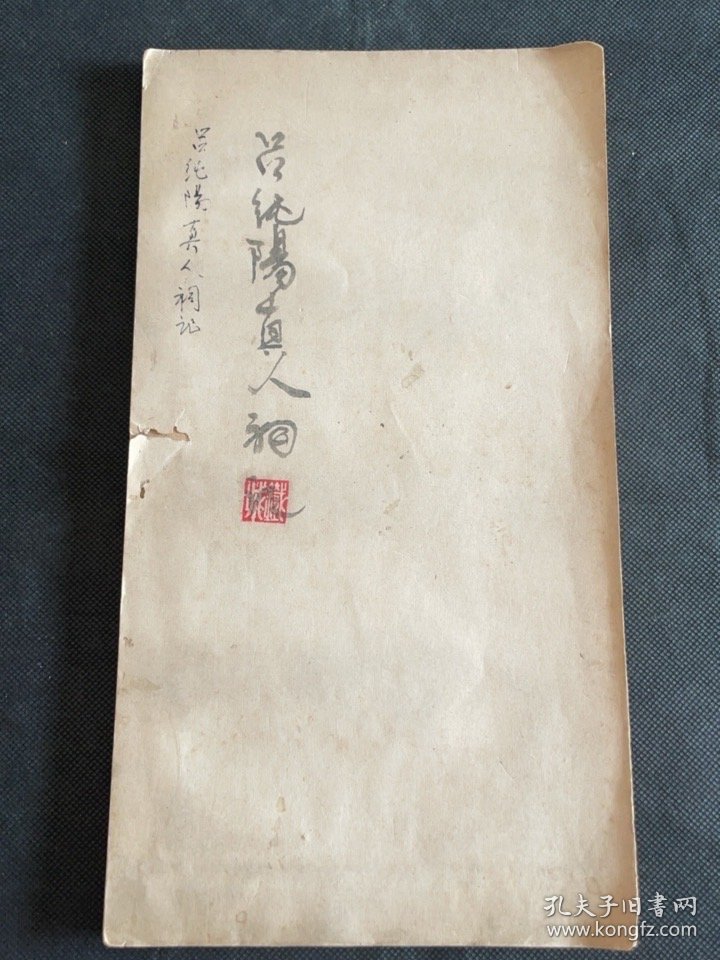 呂純陽真人祠
呂純陽真人祠記
孔夫子旧书网
www.kongfz.com